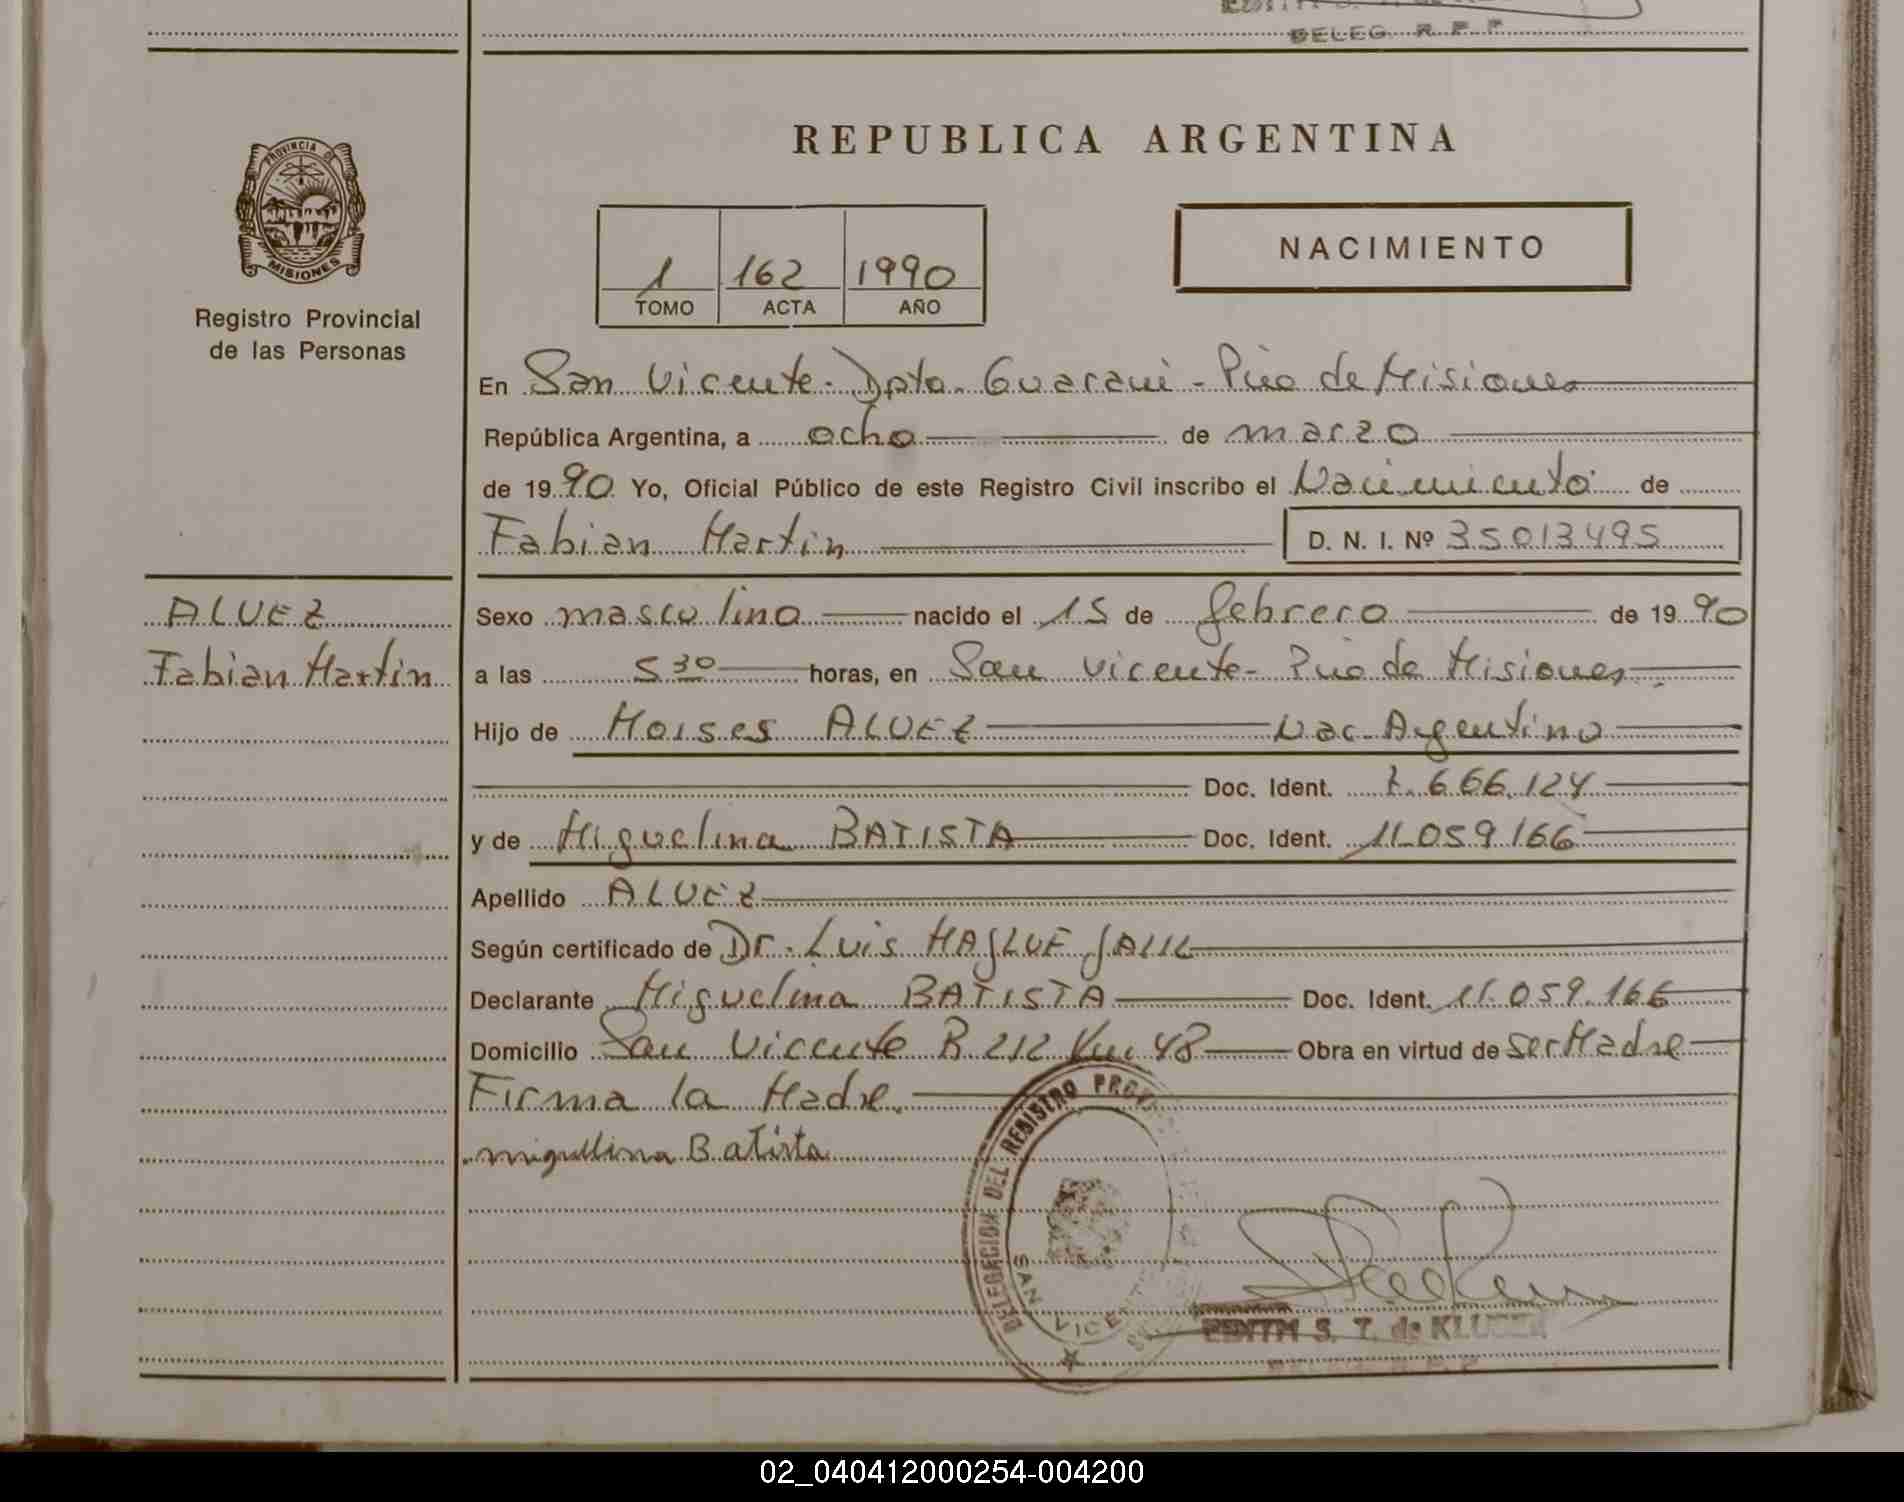 DELEG. R. P. P.
PROVINCIA DE
MISIONES
Registro Provincial
de las Personas
REPUBLICA ARGENTINA
1 162 1990
TOMO ACTA AÑO
NACIMIENTO
En San Vicente - Dpto. Guarani - Pcia de Misiones
República Argentina, a ocho de marzo
de 1990 Yo, Oficial Público de este Registro Civil inscribo el Nacimiento de
Fabian Martin D. N. I. Nº 35013495
ALVEZ
Fabian Martin
Sexo masculino nacido el 15 de febrero de 1990
a las 5 30 horas, en San Vicente - Pcia de Misiones
Hijo de Moises ALVEZ Nac. Argentino
Doc. Ident. 7.666.124
y de Miguelina BATISTA Doc. Ident. 11.059.166
Apellido ALVEZ
Según certificado de Dr. Luis
Declarante Miguelina BATISTA Doc. Ident. 11.059.166
Domicilio San Vicente R 212 Km 48 Obra en virtud de ser Madre
Firma la Madre.
miguelina Batista
DELEGACION DEL REGISTRO
SAN VICENTE
S. T. de
02_040412000254-004200